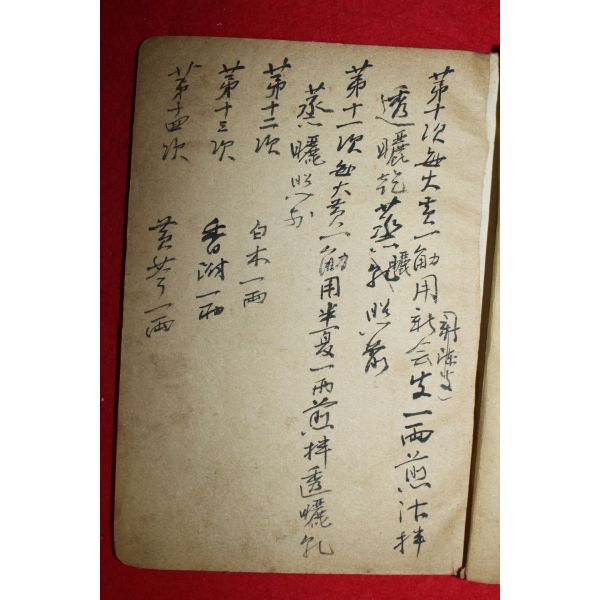 第十次每大黃一觔用新会皮一両煎汁拌
(即陳皮)
透曬乾蒸曬乳照前
第十一次每大黃一觔用半夏一両煎拌透曬乳
蒸曬照前
第十二次 白木一両
第十三次 香附一両
第十四次 黃芩一両